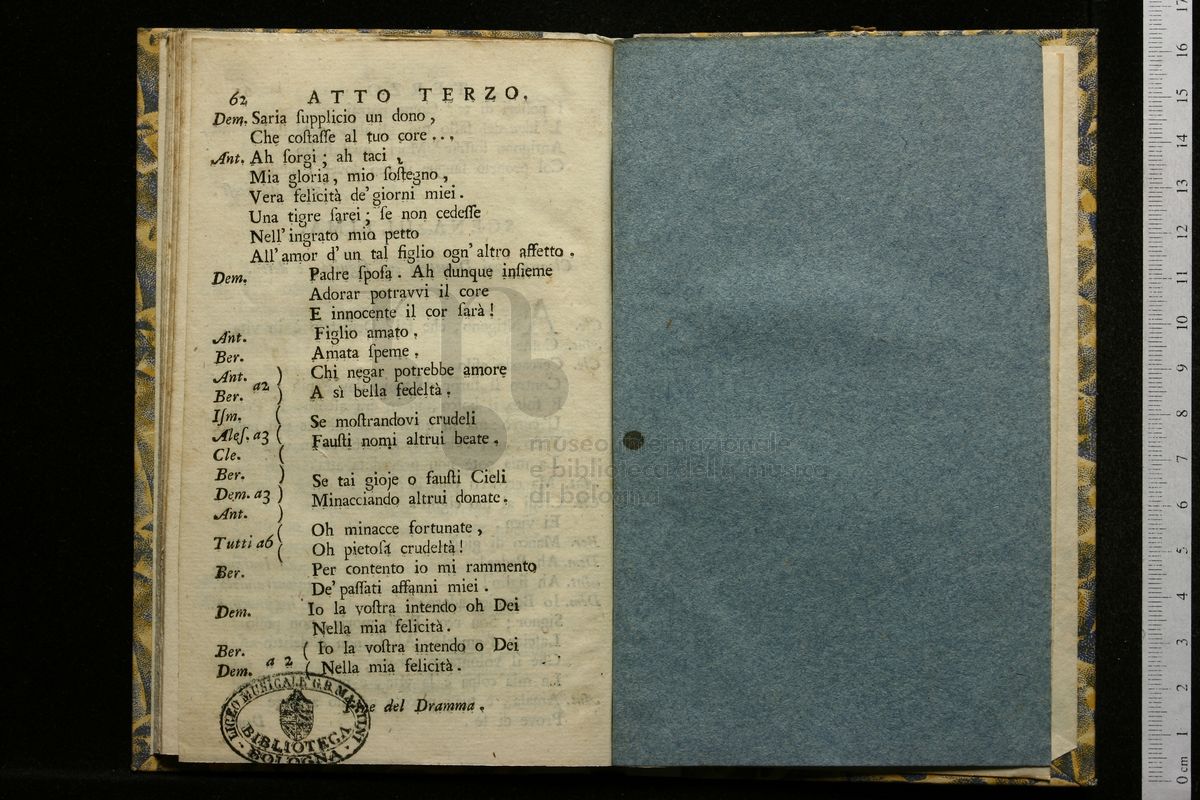 62 ATTO TERZO.
Dem. Saria ſupplicio un dono,
Che coſtaſſe al tuo core...
Ant. Ah ſorgi; ah taci,
Mia gloria, mio ſoſtegno,
Vera felicità de' giorni miei.
Una tigre ſarei; ſe non cedeſſe
Nell' ingrato mio petto
All' amor d' un tal figlio ogn' altro affetto.
Dem. Padre ſpoſa. Ah dunque inſieme
Adorar potravvi il core
E innocente il cor ſarà!
Ant. Figlio amato.
Ber. Amata ſpeme.
Ant. Chi negar potrebbe amore
Ber. a2 A sì bella fedeltà.
Iſm. Se moſtrandovi crudeli
Aleſ. a3 Fauſti nomi altrui beate.
Cle.
Ber. Se tai gioje o fauſti Cieli
Dem. a3 Minacciando altrui donate.
Ant.
Tutti a6 Oh minacce fortunate,
Oh pietoſa crudeltà!
Ber. Per contento io mi rammento
De' paſſati affanni miei.
Dem. Io la voſtra intendo oh Dei
Nella mia felicità.
Ber. Io la voſtra intendo o Dei
Dem. a 2 Nella mia felicità.
Fine del Dramma.
LICEO MUSICALE G.B. MARTINI
BIBLIOTECA
- BOLOGNA -
museo internazionale
e biblioteca della musica
di bologna
17
16
15
14
13
12
11
10
9
8
7
6
5
4
3
2
1
0 cm